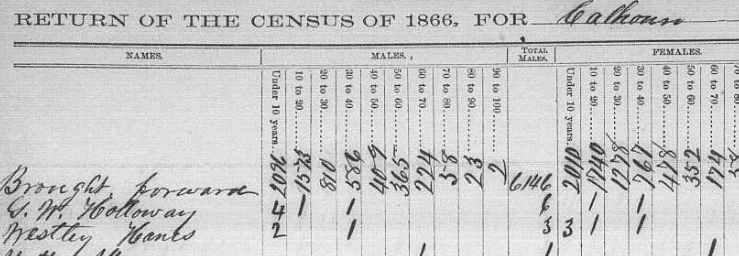 RETURN OF THE CENSUS OF 1866, FOR Calhoun
NAMES. MALES. TOTAL MALES. FEMALES.
Under 10 years. 10 to 20 20 to 30 30 to 40 40 to 50 50 to 60 60 to 70 70 to 80 80 to 90 90 to 100 Under 10 years. 10 to 20 20 to 30 30 to 40 40 to 50 50 to 60 60 to 70 70 to 80
Brought forward 2096 1575 810 586 409 365 224 58 23 2 6146 2010 1740 1278 767 478 352 174
G. W. Holloway 4 1 1 6 1 1
Westley Hanes 2 1 3 3 1 1
1 1 1